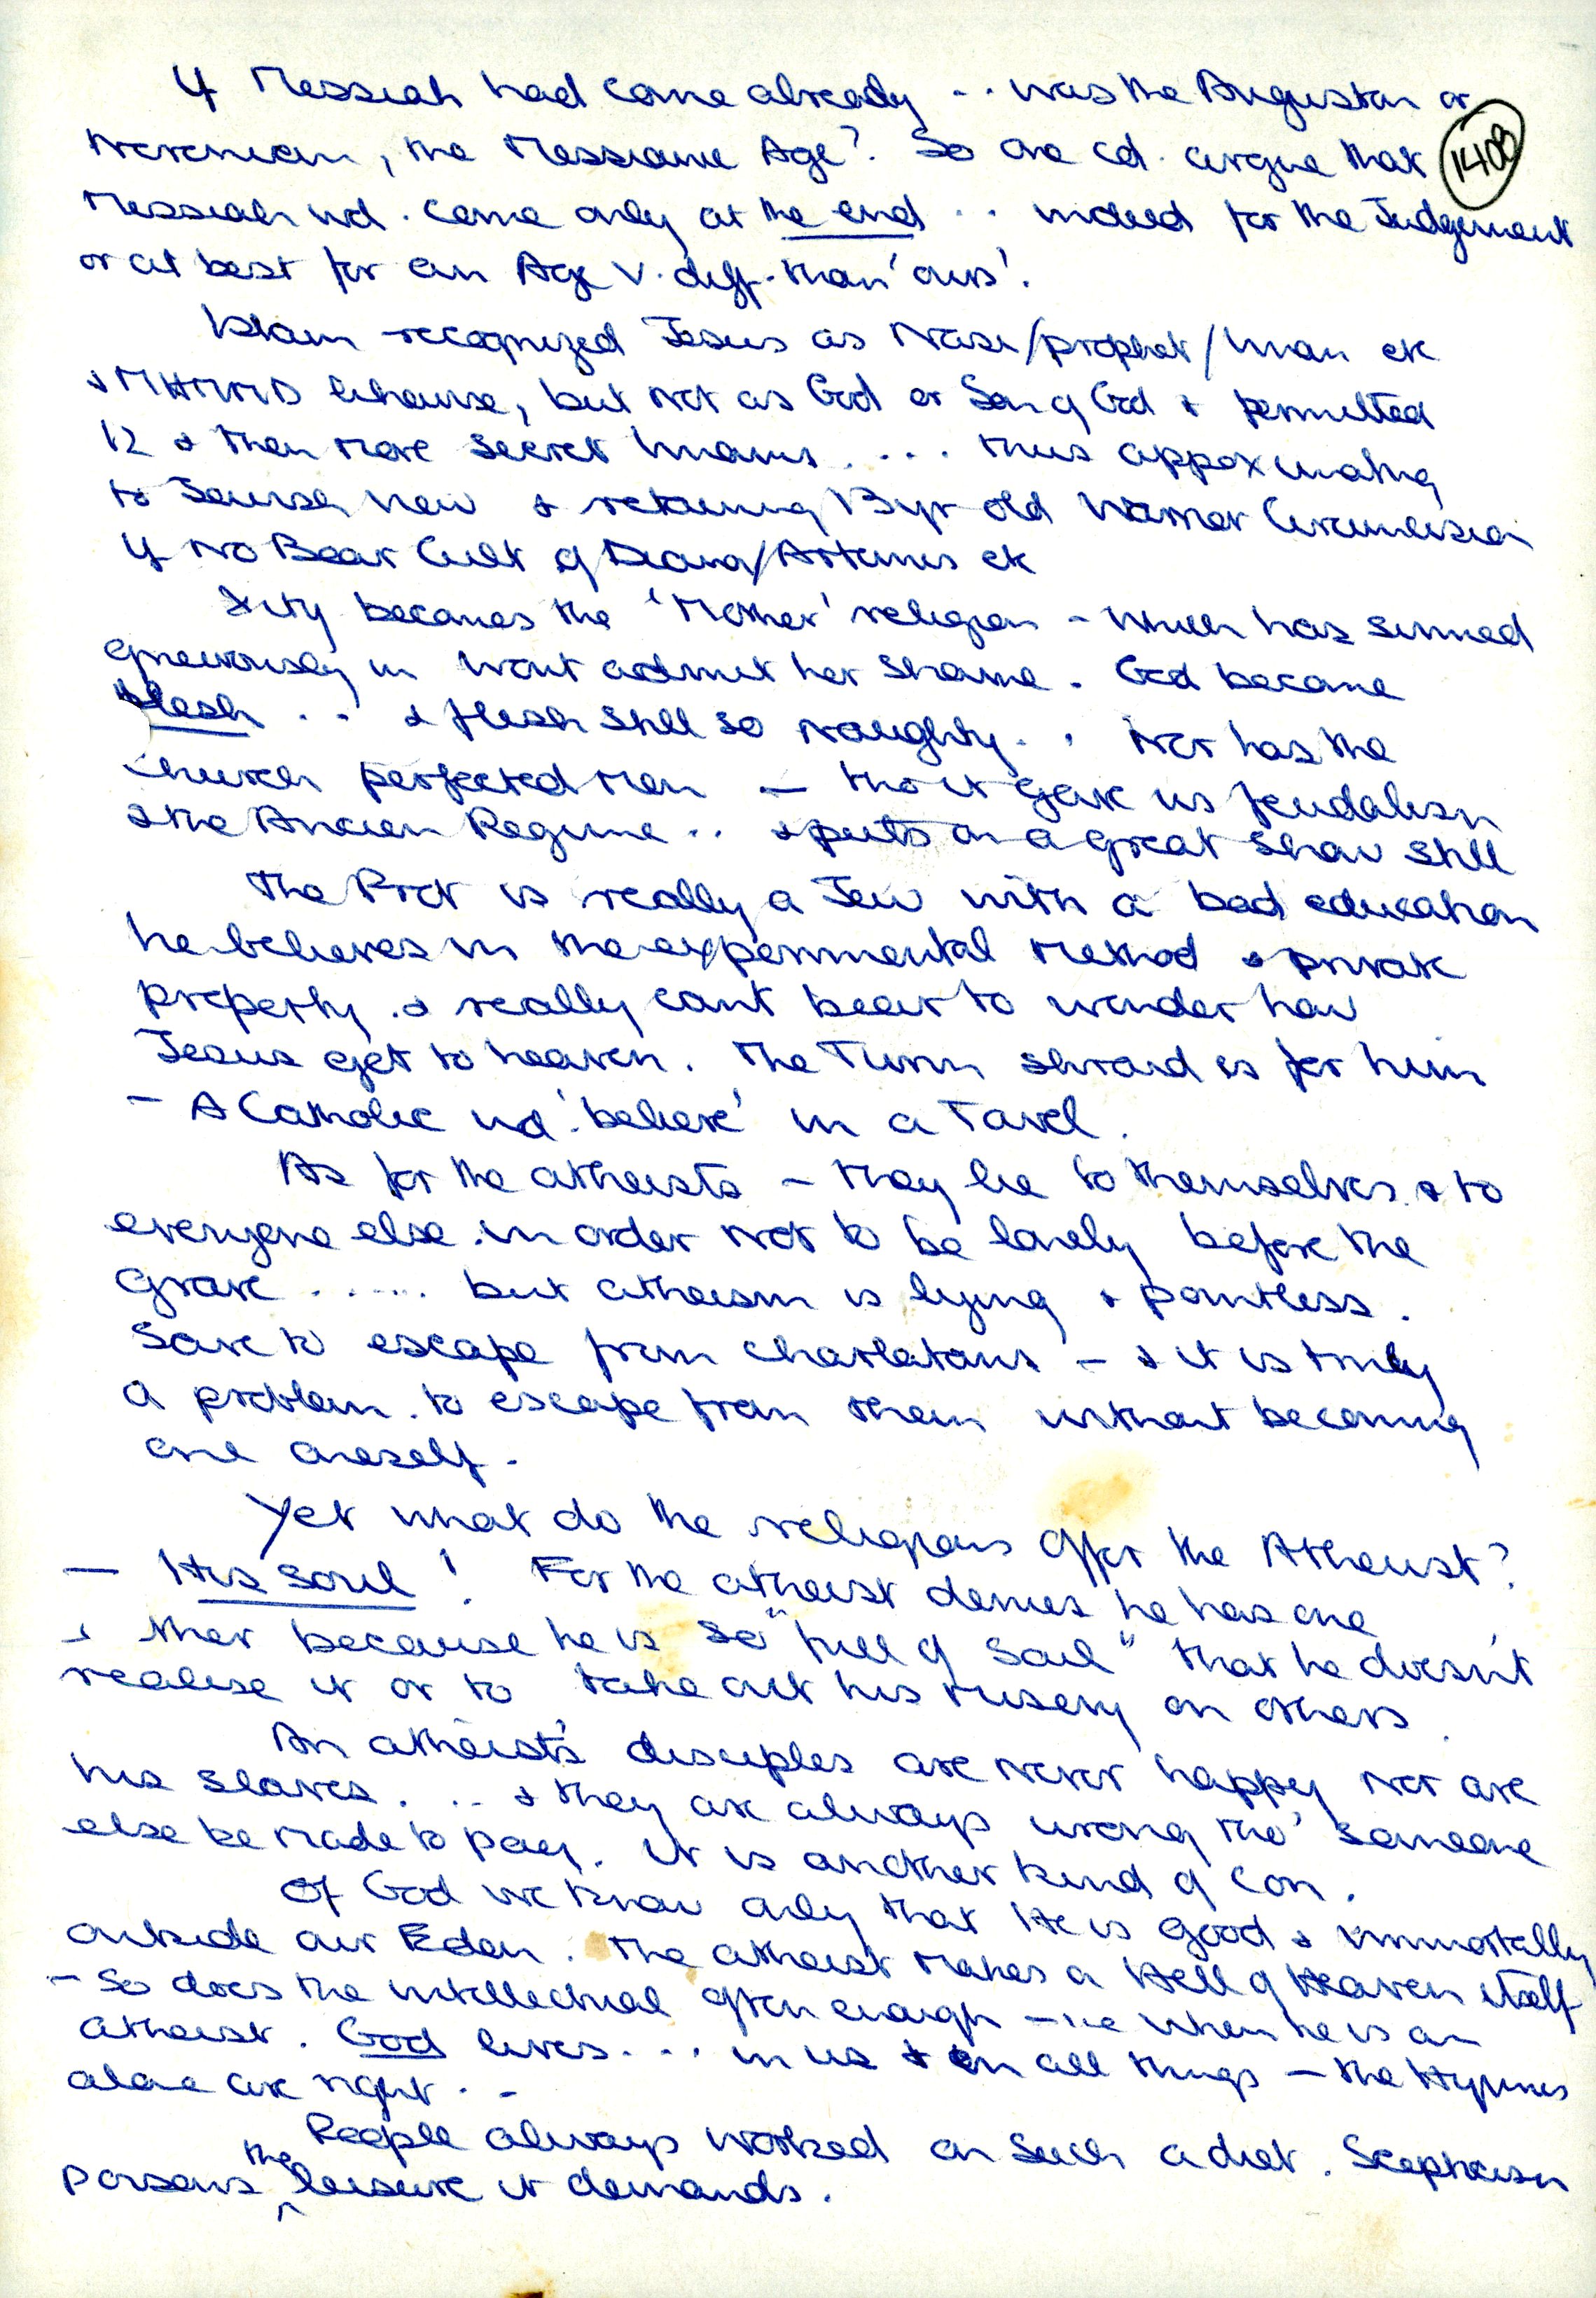 If Messiah had come already .. was the Augustan or
Neronian, the Messianic Age? So one cd. argue that
1408
Messiah wd. come only at the end .. indeed for the Judgement
or at best for an Age v. diff. than 'ours'.
Islam recognized Jesus as Nasi/prophet/Iman etc
& MHMMD likewise, but not as God or Son of God & permitted
12 & then more secret Imams .... thus approximating
to Jewish view & retaining 13yr old Warrior Circumcision
if no Bear Cult of Diana/Artemis etc
Xity becomes the 'Mother' religion - which has sinned
grievously in wont admit her shame. God became
flesh .. & flesh still so naughty .. Nor has the
Church perfected Men — tho it gave us feudalism
& the Ancien Regime .. & puts on a great show still
The Prot is really a Jew with a bad education
he believes in the experimental Method & private
property & really cant bear to wonder how
Jesus got to heaven. The Turin shroud is for him
- A Catholic wd. 'believe' in a Towel.
As for the atheists - they lie to themselves & to
everyone else in order not to be lonely before the
grave ..... but atheism is lying & pointless.
Save to escape from charlatans - & it is truly
a problem to escape from them without becoming
one oneself.
Yet what do the religions offer the Atheist?
— His soul! For the atheist denies he has one
& ther because he is so "full of soul" that he doesn't
realise it or to take out his misery on others.
An atheist's disciples are never happy nor are
his slaves ... & they are always wrong tho' someone
else be made to pay. It is another kind of con.
Of God we know only that He is good & immortally
outside our Eden. The atheist makes a Hell of Heaven itself
- So does the intellectual often enough - ie when he is an
atheist. God lives ... in us & in all things - the Hymns
alone are right ..
People always worked on such a diet. Scepticism
poisons the leisure it demands.